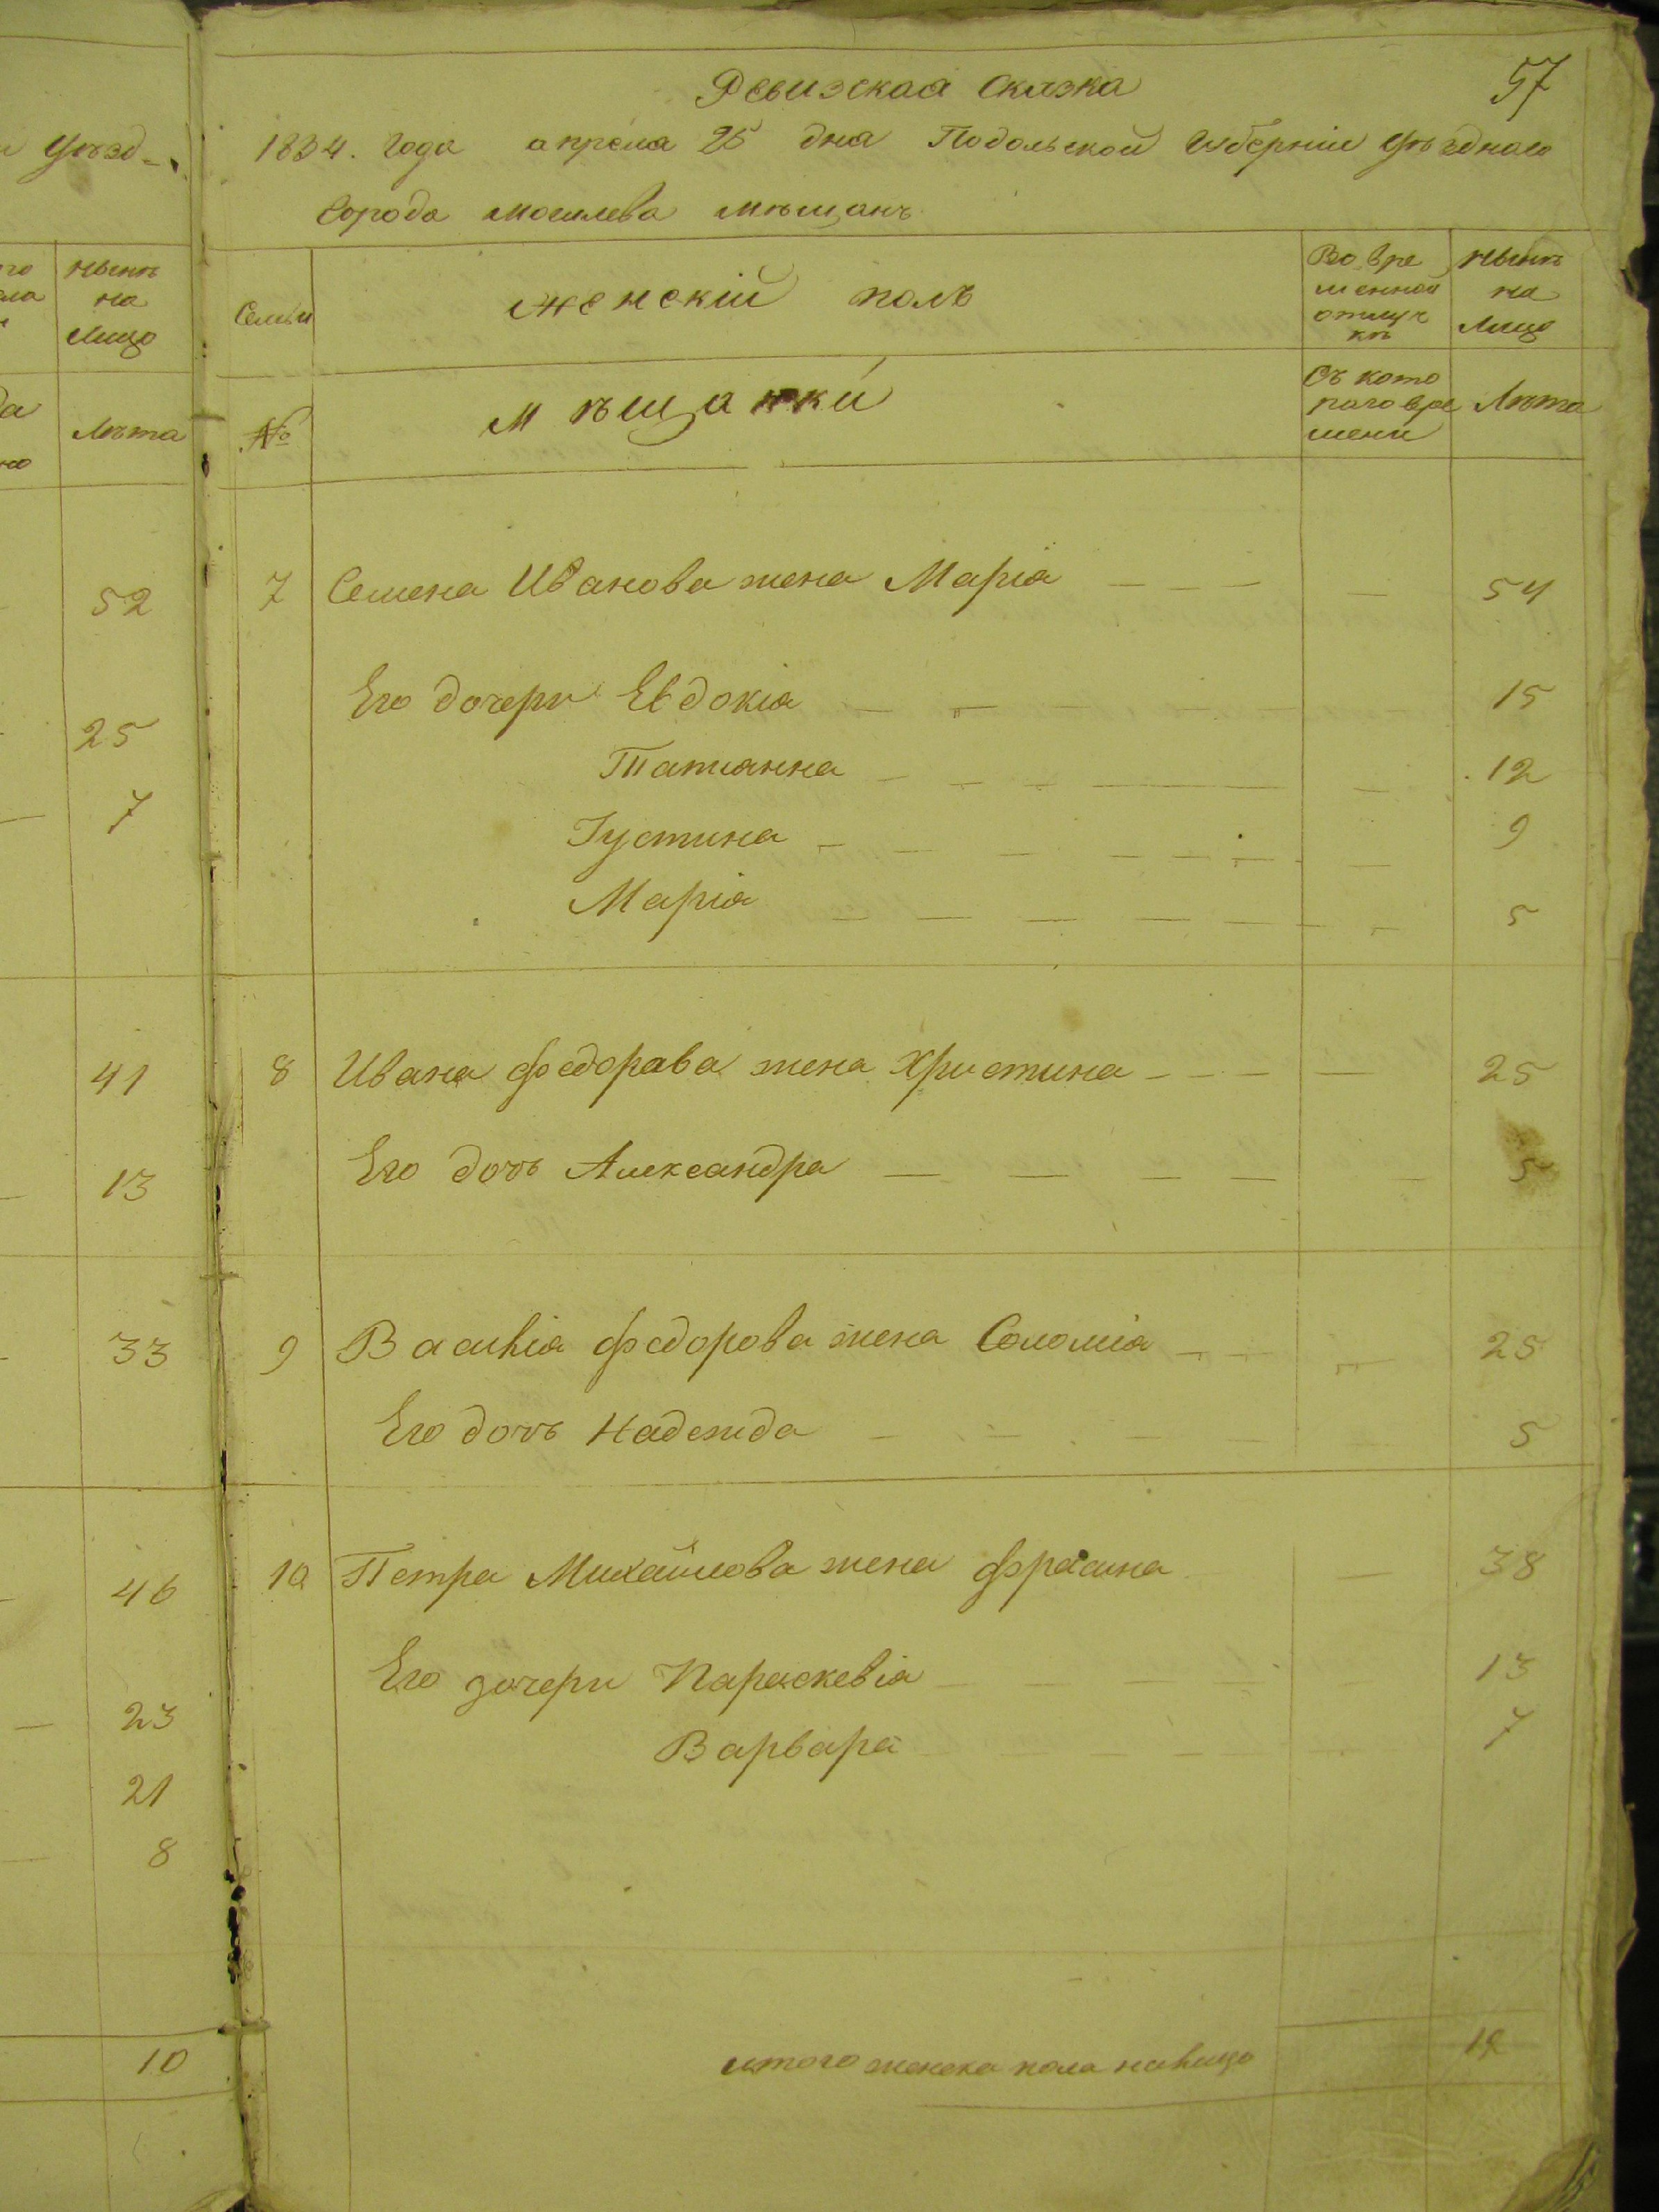 57
Ревизская сказка
1834. года апреля 25 дна Подольской Губерніи уѣзднаго
города могилева мѣщанъ
уѣзд-
ныне
на
лицо
Лѣта
52
25
7
41
13
33
46
23
21
8
10
Семьи
женскій полъ
Во вре
менной
отлуч
кѣ
нынѣ
на
Лицо
№
мѣщанки
Съ кото
раго вре
мени
Лѣта
7 Семена Иванова жена Маріа — — — 54
Его дочери Евдокіа — — — 15
Татианна — — — 12
Іустина — — — 9
Маріа — — — 5
8 Ивана федорава жена Христина - - - — 25
Его дочь Александра — — — 5
9 Василіа федорова жена Соломіа — — 25
Его дочь Надежда — — — 5
10 Петра Михайлова жена фрасина — 38
Его дочери Параскевіа — — — 13
Варвара — — — 7
итого женска пола налицо 12